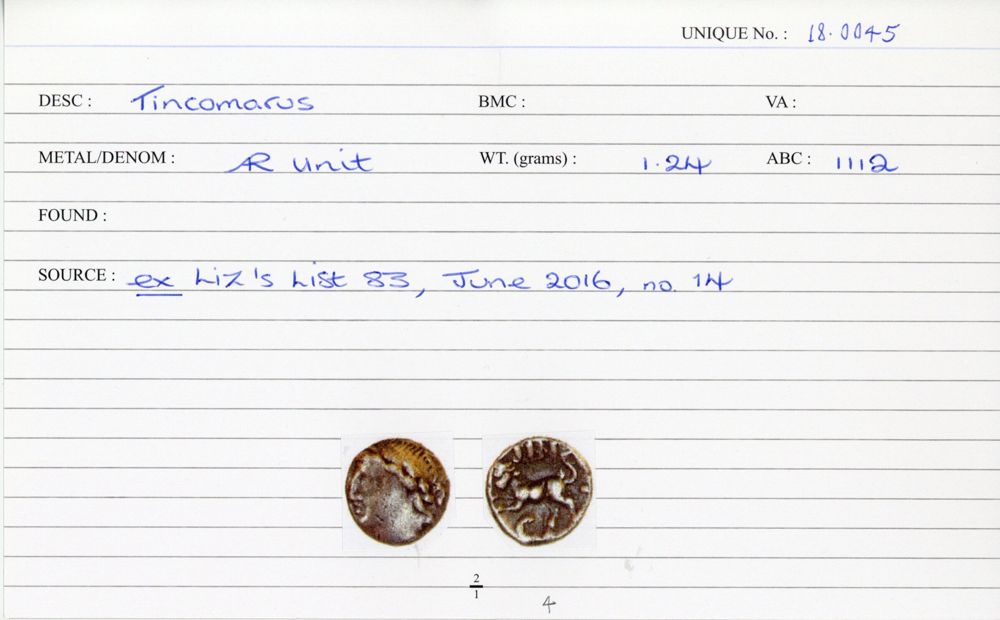 UNIQUE No. : 18.0045
DESC : Tincomarus BMC : VA :
METAL/DENOM : AR Unit WT. (grams) : 1.24 ABC : 1112
FOUND :
SOURCE : ex Liz's List 83, June 2016, no. 14
2
1
4